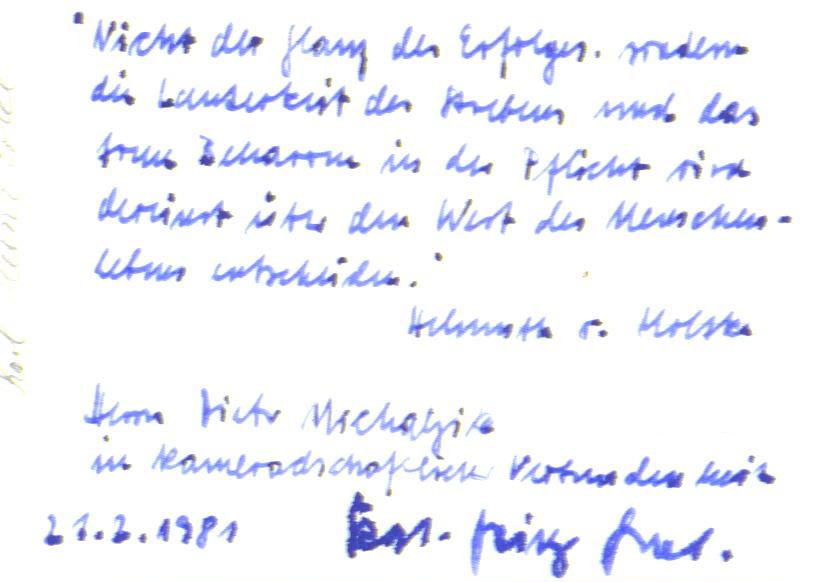 "Nicht der Glanz des Erfolges. sondern
die Lauterkeit des Strebens und das
treue Beharren in der Pflicht wird
dereinst über den Wert des Menschen-
lebens entscheiden."
Helmuth v. Moltke
Herrn Dieter Michalzik
in kameradschaftlicher Verbundenheit
21.2.1981